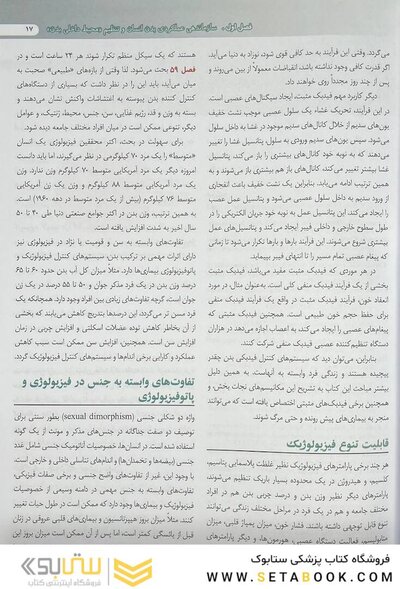 فصل اول . سازماندهی عملکردی بدن انسان و تنظیم «محیط داخلی بدن» ۱۷
می‌گردد. وقتی این فرآیند به حد کافی قوی شود، نوزاد به دنیا می‌آید.
اگر قدرت کافی وجود نداشته باشد، انقباضات معمولاً از بین می‌روند و
پس از چند روز مجدداً روی خواهند داد.
دیگر کاربرد مهم فیدبک مثبت، ایجاد سیگنال‌های عصبی است.
در این فرآیند، تحریک غشاء یک سلول عصبی موجب نشت خفیف
یون‌های سدیم از خلال کانال‌های سدیم موجود در غشا به داخل سلول
می‌شود. سپس یون‌های سدیم ورودی به سلول، پتانسیل غشا را تغییر
می‌دهند که به نوبه خود کانال‌های بیشتری را باز می‌کند، پتانسیل
غشا بیشتر تغییر می‌کند، کانال‌های باز هم بیشتری باز می‌شوند و به
همین ترتیب ادامه می‌یابد. بنابراین یک نشت خفیف باعث انفجاری
از ورود سدیم به داخل سلول عصبی می‌شود و پتانسیل عمل عصب
را ایجاد می‌کند. این پتانسیل عمل به نوبه خود جریان الکتریکی را در
طول سطوح خارجی و داخلی فیبر ایجاد می‌کند و پتانسیل‌های عمل
بیشتری شروع می‌شوند. این فرآیند بارها و بارها تکرار می‌شود تا زمانی
که پیغام عصبی تمام مسیر را تا انتهای فیبر بپیماید.
در هر موردی که فیدبک مثبت مفید می‌باشد، فیدبک مثبت
بخشی از یک فرآیند فیدبک منفی کلی است. به‌عنوان مثال، در مورد
انعقاد خون فرآیند فیدبک مثبت در واقع یک فرآیند فیدبک منفی
برای حفظ حجم خون طبیعی است. همچنین فیدبک مثبتی که
پیغام‌های عصبی را ایجاد می‌کند، به اعصاب اجازه می‌دهد در هزاران
دستگاه تنظیم‌کننده عصبی فیدبک منفی شرکت کنند.
بنابراین، می‌توان دید که سیستم‌های کنترل فیدبکی بدن چقدر
پیچیده هستند و زندگی فرد وابسته به آنهاست. به همین دلیل
بیشتر مباحث این کتاب به تشریح این مکانیسم‌های نجات بخش، و
همچنین برخی فیدبک‌های مثبتی اختصاص یافته است که می‌توانند
منجر به بیماری‌های پیش رونده و حتی مرگ شوند.
قابلیت تنوع فیزیولوژیک
هر چند برخی پارامترهای فیزیولوژیک نظیر غلظت پلاسمایی پتاسیم،
کلسیم، و هیدروژن در یک محدوده بسیار باریک تنظیم می‌شوند،
پارامترهای دیگر نظیر وزن بدن و درصد چربی بدن هم در افراد
مختلف جامعه و هم در یک فرد در مراحل مختلف زندگی می‌توانند
تنوع قابل توجهی داشته باشند. فشار خون، میزان پمپاژ قلبی، میزان
متابولیسم، فعالیت دستگاه عصبی، هورمون‌ها، و دیگر پارامترهای
هستند که به یک سیکل منظم تکرار شوند هر ۲۴ ساعت است و در
فصل ۵۹ بحث می‌شود. لذا وقتی از بازه‌های «طبیعی» صحبت به
میان می‌آید، باید این را در نظر داشت که بسیاری از دستگاه‌های
کنترل کننده بدن پیوسته به اغتشاشات واکنش نشان می‌دهند و
بسته به وزن و قد، رژیم غذایی، سن، جنس، محیط، ژنتیک، و عوامل
دیگر، تنوعی ممکن است در میان افراد مختلف جامعه دیده شود.
برای سهولت در بحث، اکثر محققین فیزیولوژی یک انسان
«متوسط» را یک مرد ۷۰ کیلوگرمی در نظر می‌گیرند، اما باید دانست
امروزه دیگر یک مرد آمریکایی متوسط ۷۰ کیلوگرم وزن ندارد. وزن
یک مرد آمریکایی متوسط ۸۸ کیلوگرم و وزن یک زن آمریکایی
متوسط ۷۶ کیلوگرم (بیش از یک مرد متوسط در دهه ۱۹۶۰) است.
به همین ترتیب، وزن بدن در اکثر جوامع صنعتی دنیا طی ۴۰ تا ۵۰
سال اخیر به شدت افزایش یافته است.
تفاوت‌های وابسته به سن و قومیت یا نژاد در فیزیولوژی نیز
دارای اثرات مهمی بر ترکیب بدن، سیستم‌های کنترل فیزیولوژیک و
پاتوفیزیولوژی بیماری‌ها دارد. مثلاً میزان کل آب بدن حدود ۶۰ تا ۶۵
درصد وزن بدن در یک فرد مذکر جوان و ۵۰ تا ۵۵ درصد در یک زن
جوان است، گرچه تفاوت‌های زیادی بین افراد وجود دارد. همچنانکه یک
فرد مسن تر می‌گردد، این درصدها بتدریج کاهش می‌یابند که بخشی
از آن بخاطر کاهش توده عضلات اسکلتی و افزایش چربی در زمان
افزایش سن است. همچنین، افزایش سن ممکن است سبب کاهش
عملکرد و کارایی برخی اندام‌ها و سیستم‌های کنترل فیزیولوژیک گردد.
تفاوت‌های وابسته به جنس در فیزیولوژی و
پاتوفیزیولوژی
واژه دو شکلی جنسی (sexual dimorphism) بطور سنتی برای
توصیف دو صفت جداگانه در جنس‌های مذکر و مونث از یک گونه
استفاده شده است. در انسان‌ها، خصوصیات آناتومیک جنسی شامل غدد
جنسی (بیضه‌ها و تخمدان‌ها) و اندام‌های تناسلی داخلی و خارجی است.
با وجود این، غیر از تفاوت‌های واضح جنسی و برخی صفات فیزیکی،
تفاوت‌های وابسته به جنس مهمی در دامنه وسیعی از خصوصیات
فیزیولوژیک و بیماری‌ها وجود دارد که ممکن است در طول حیات تغییر
کنند. مثلاً میزان بروز هیپرتانسیون و بیماری‌های قلبی عروقی در زنان
قبل از یائسگی کمتر است، اما پس از آن ممکن است میزان بروز این
فروشگاه کتاب پزشکی ستابوک
WWW.SETABOOK.COM
ستابوک
فروشگاه اینترنتی کتاب